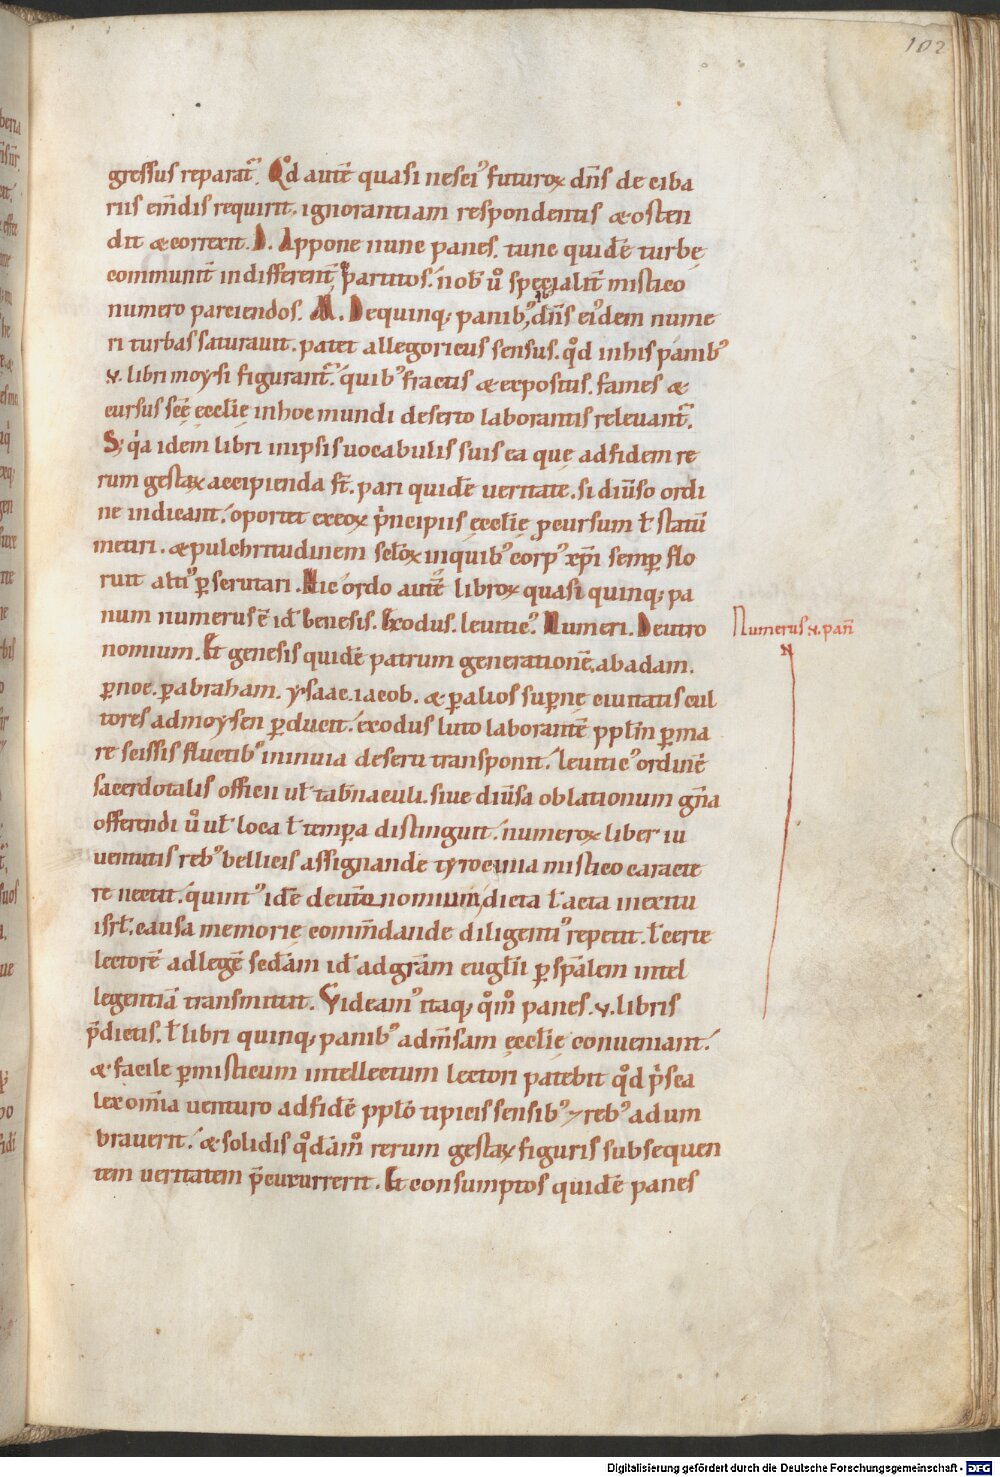 102
gressus reparat᷑. Qd̊ autē quasi nesci᾿ futuroꝝ dn̄s de ciba
riis em̄dis requirit. ignorantiam respondentis & osten
dit & correxit. D. Appone nunc panes. tunc quidē turbe
communit̄ indifferent̄ partitos. nob᾿ u̇ specialit̄ mistico
numero parciendos. M. De quinq; panib᾿ dn̄s ei᾿dem nume
ri turbas saturauit. patet allegoricus sensus. qd̊ in his panib᾿
v. libri moysi figurant᷑. quib᾿ fractis & expositis. fames &
cursus scē ęccłię in hoc mundi deserto laborantis releuant᷑.
S; q̇a idem libri in ipsis uocabulis suis ea que ad fidem re
rum gestaꝝ accipienda st̄. pari quidē ueritate. si diu̅so ordi
ne indicant. oportet ex eoꝝ pˈncipiis ęccłię ꝓcursum ł statū
metiri. & pulchritudinem scłoꝝ in quib᾿ corp᾿ xp̄i semꝑ flo
ruit alti᾿ ꝑserutari. Hic ordo autē libroꝝ quasi quinq; pa
num numerus ē id᾿ benesis. Exodus. leuitic᾿. Numeri. Deutro
Numerus v. pan̄
nomium. Et genesis quidē patrum generationē ab adam.
ꝑ noe. ꝑ abraham. ysaac. iacob. & ꝑ alios supernę ciuitatis cul
tores ad moysen ꝑducit. exodus luto laborantē ppłm ꝑ ma
re scissis fluctib᾿ in inuia deserti transponit. leuitic᾿ ordinē
sacerdotalis officii uł tab̄naculi. siue diu̅sa oblationum gn̄a
offerendi u̇ uł loca ł tempꝑa distinguit. numeroꝝ liber iu
uentutis reb᾿ bellicis assignande tyrocinia mistico caracte
re nectit. quint᾿ idē deutronomium, dicta ł acta in exitu
isrł. causa memorię com̄dande diligenti᾿ repetit. ł certe
lectorē ad legē sc̄dam id᾿ ad grām eugłii ꝑ spālem intel
legentiā transmittit. Videam᾿ itaq; qm̊ panes. v. libris
p̄dictis. ł libri quinq; panib᾿ ad m̄sam ęccłię conueniant.
& facile ꝑ misticum intellectum lectori patebit qd̊ pˈsca
lex om̄ia uenturo ad fidē ppło tipicis sensib᾿ & reb᾿ adum
brauerit. & solidis qd̊am̊ rerum gestaꝝ figuris subsequen
tem ueritatem p̄cucurrerit. Et consumptos quidē panes
Digitalisierung gefördert durch die Deutsche Forschungsgemeinschaft - DFG